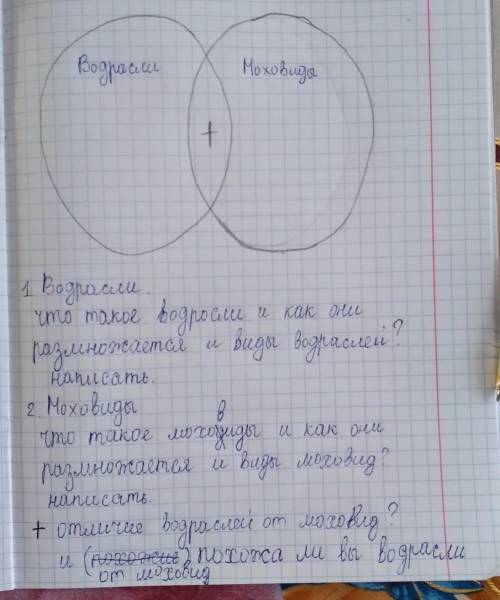 Водрасли
Моховиды
+
1. Водрасли.
что такое водросли и как они
размножается и виды водраслей?
написать.
2. Моховиды
в
что такое моховиды и как они
размножается и виды моховид?
написать.
+ отличие водраслей от моховид?
и (похожие) похожа ли вы водрасли
от моховид